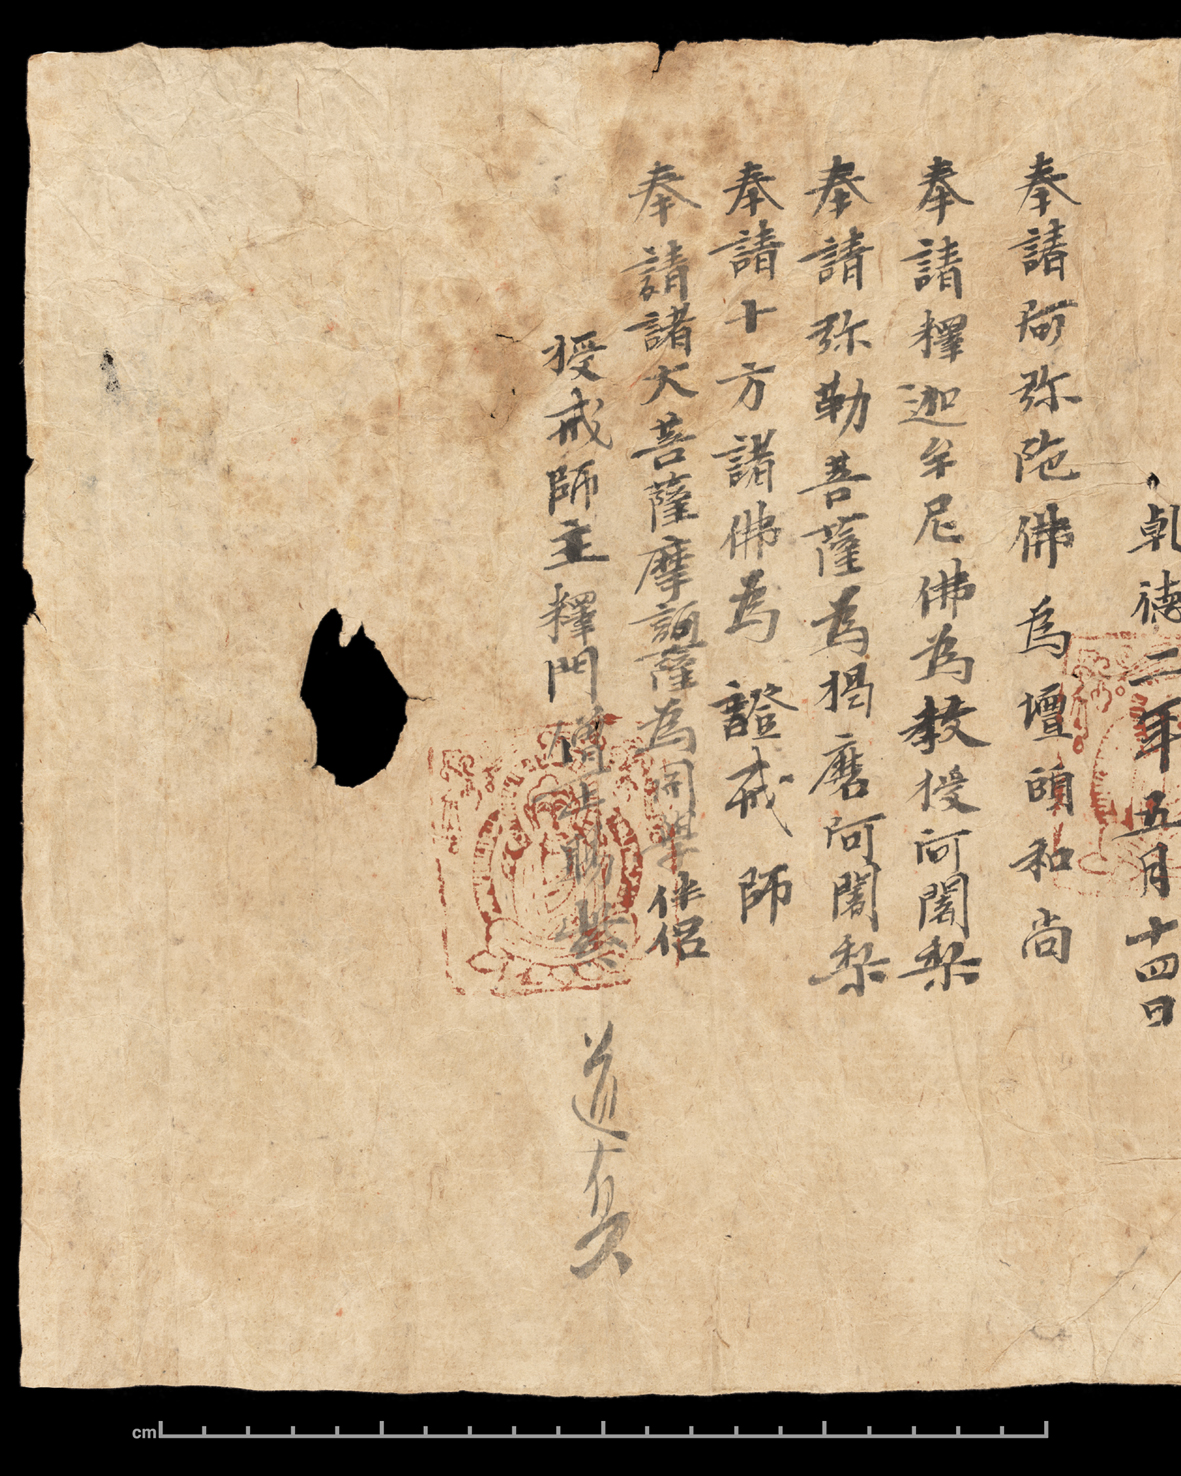 乹德二年五月十四日
奉請阿弥陁佛為壇頭和尚
奉請釋迦牟尼佛為教授阿闍梨
奉請弥勒菩薩為羯磨阿闍梨
奉請十方諸佛為證戒師
奉請諸大菩薩摩訶薩為同學伴侣
授戒師主釋門僧正賜紫
道真
cm